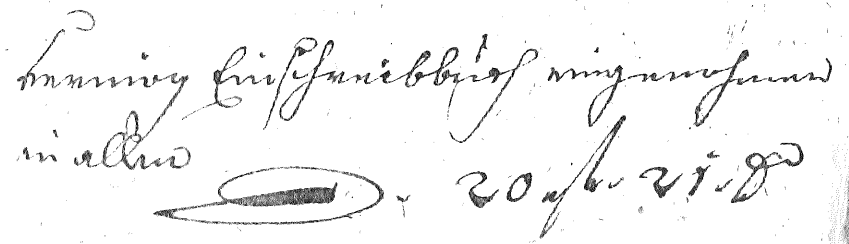 vermög Einschreibbuch eingenohmen
in allem
20 fl. 21. Xr